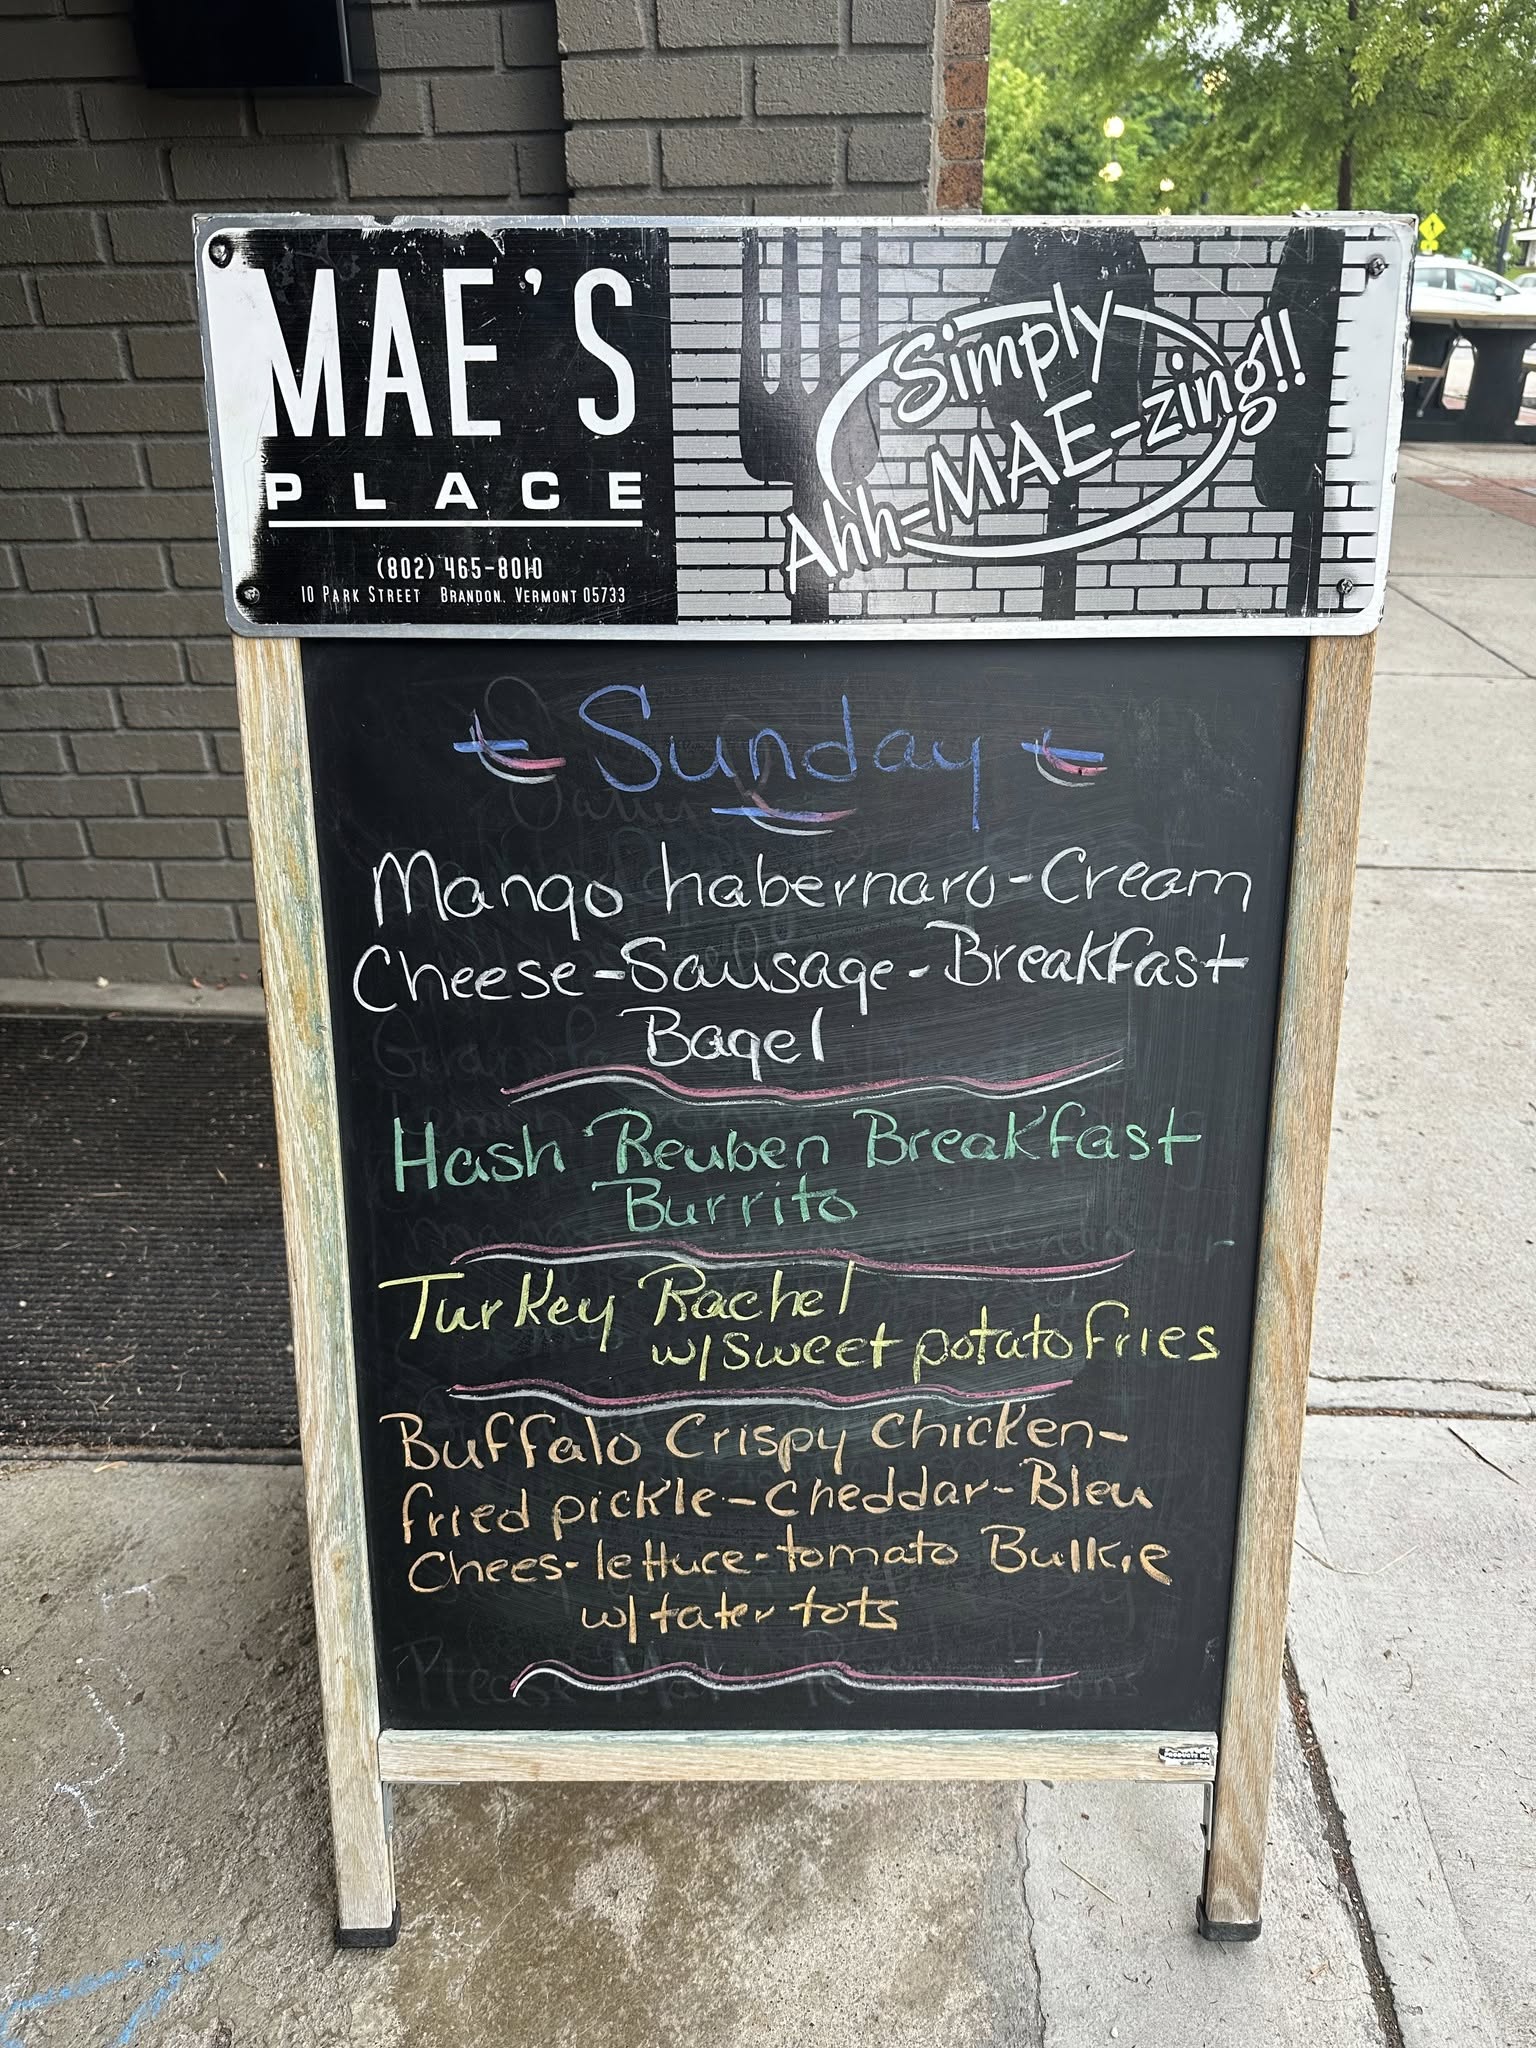 MAE'S
PLACE
(802) 465-8010
10 PARK STREET BRANDON, VERMONT 05733
Simply
Ahh-MAE-zing!!
Sunday
Mango habernaro-Cream
Cheese-Sausage-Breakfast
Bagel
Hash Reuben Breakfast
Burrito
Turkey Rachel
w/sweet potato fries
Buffalo Crispy Chicken-
fried pickle-Cheddar-Bleu
Chees-lettuce-tomato Bulkie
w/ tater tots